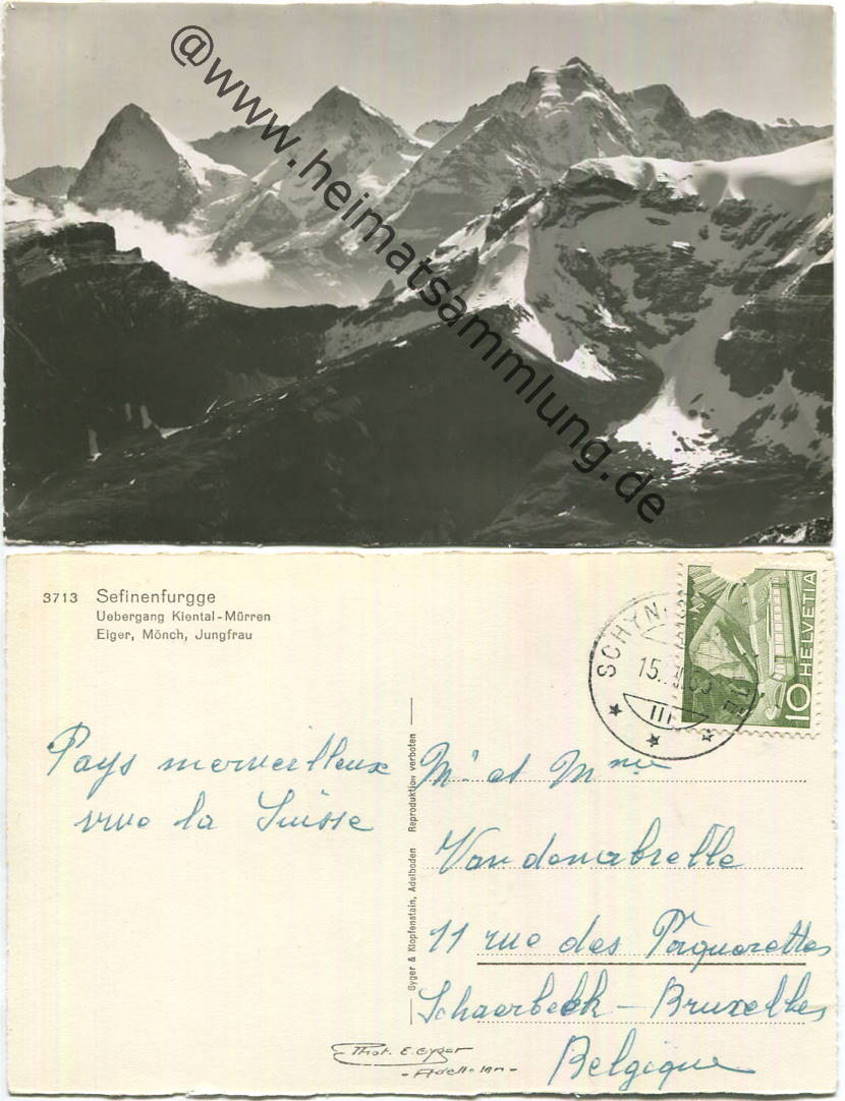 @www.heimatsammlung.de
3713 Sefinenfurgge
Uebergang Kiental-Mürren
Eiger, Mönch, Jungfrau
HELVETIA
10
15.
III
Pays merveilleux
vive la Suisse
Gyger & Klopfenstein, Adelboden Reproduktion verboten
Mr et Mme
Vandenabeelle
11 rue des Pâquerettes
Schaerbeek - Bruxelles
Belgique
Phot. E. Gyger